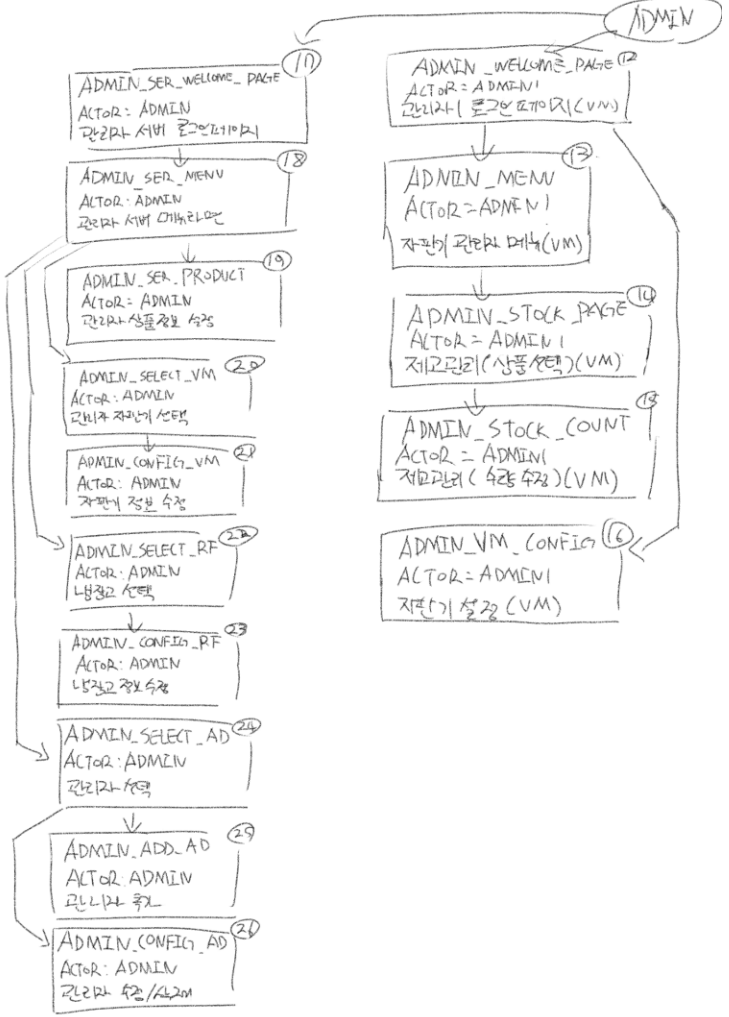 ADMIN
17
ADMIN_SER_WELLOME_PAGE
ACTOR: ADMIN
관리자 서버 로그인페이지
18
ADMIN_SER_MENU
ACTOR: ADMIN
관리자 서버 메뉴화면
19
ADMIN_SER_PRODUCT
ACTOR: ADMIN
관리자 상품정보 수정
20
ADMIN_SELECT_VM
ACTOR: ADMIN
관리자 자판기 선택
21
ADMIN_CONFIG_VM
ACTOR: ADMIN
자판기 정보 수정
22
ADMIN_SELECT_RF
ACTOR: ADMIN
냉장고 선택
23
ADMIN_CONFIG_RF
ACTOR: ADMIN
냉장고 정보 수정
24
ADMIN_SELECT_AD
ACTOR: ADMIN
관리자 선택
25
ADMIN_ADD_AD
ACTOR: ADMIN
관리자 추가
26
ADMIN_CONFIG_AD
ACTOR: ADMIN
관리자 수정/삭제
12
ADMIN_WELLOME_PAGE
ACTOR = ADMIN1
관리자1 로그인 페이지(VM)
13
ADMIN_MENU
ACTOR = ADMIN1
자판기 관리자 메뉴(VM)
14
ADMIN_STOCK_PAGE
ACTOR = ADMIN1
재고관리(상품선택)(VM)
15
ADMIN_STOCK_COUNT
ACTOR = ADMIN1
재고관리(수량수정)(VM)
16
ADMIN_VM_CONFIG
ACTOR = ADMIN1
자판기 설정 (VM)